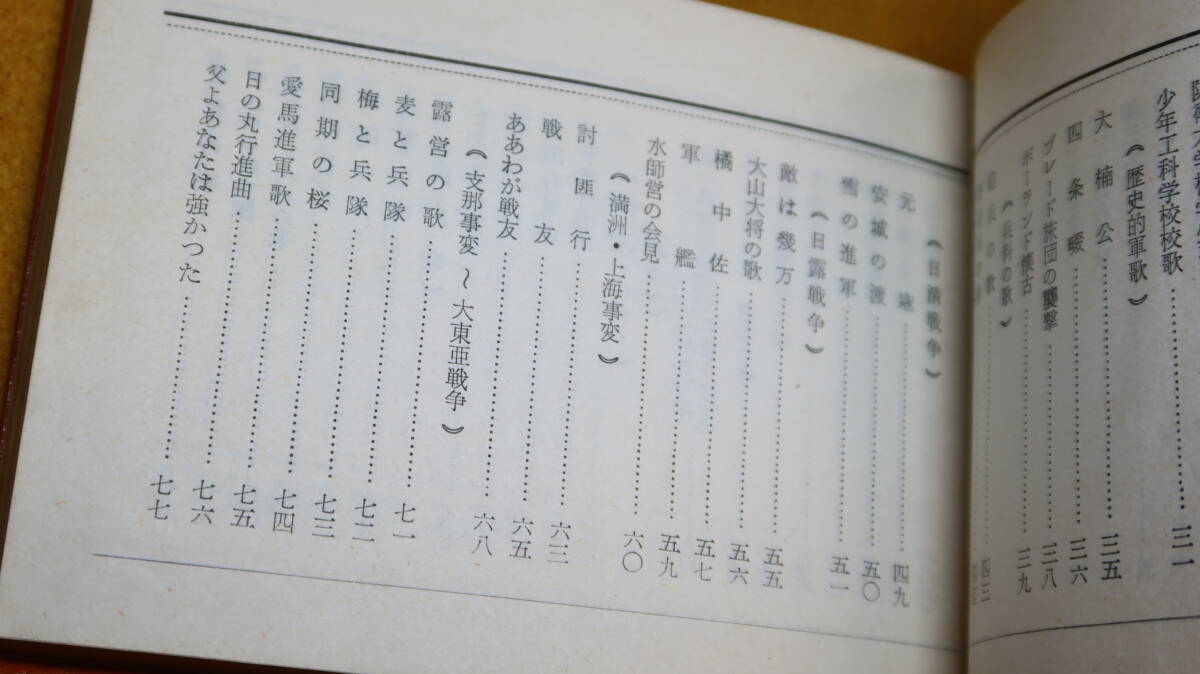 少年工科学校校歌……三一
《歴史的軍歌》
大楠公……三五
四条畷……三六
ブレード旅団の襲撃……三八
ポーランド懐古……三九
《兵科の歌》
の歌……四三
《日清戦争》
元寇……四九
安城の渡……五〇
雪の進軍……五一
《日露戦争》
敵は幾万……五五
大山大将の歌……五六
橘中佐……五七
軍艦……五九
水師営の会見……六〇
《満洲・上海事変》
討匪行……六三
戦友……六五
ああわが戦友……六八
《支那事変〜大東亜戦争》
露営の歌……七一
麦と兵隊……七二
梅と兵隊……七三
同期の桜……七四
愛馬進軍歌……七五
日の丸行進曲……七六
父よあなたは強かつた……七七